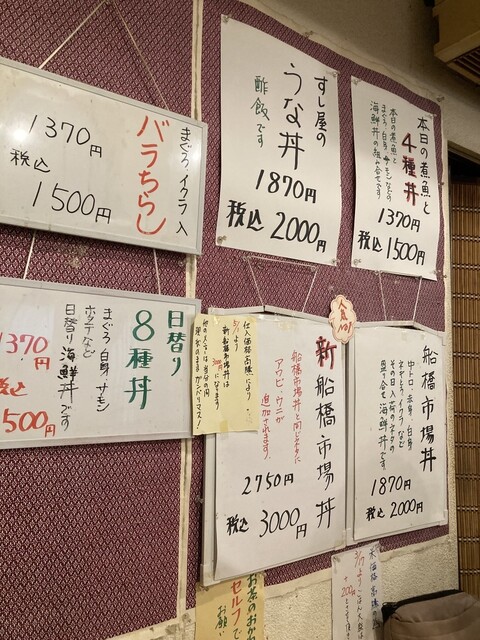 まぐろ、イクラ入
バラちらし
1370円
税込
1500円
すし屋の
うな丼
酢飯です
1870円
税込 2000円
本日の煮魚と
4種丼
本日の煮魚と
まぐろ、白身、サモンなどの
海鮮丼の組み合せです
1370円
税込 1500円
日替り
8種丼
まぐろ、白身、サモン
ホタテなど
日替り海鮮丼です
1370円
税込
1500円
仕入価格高騰により
新船橋市場丼は
3000円になります
人気No.1
新船橋市場丼
船橋市場丼と同じネタに
アワビ、ウニが
追加されます
2750円
税込 3000円
船橋市場丼
中トロ、赤身、白身
盛り合せ海鮮丼です。
1870円
税込 2000円
お茶のおかわ
セルフで
お願い
米価格高騰の
+200円